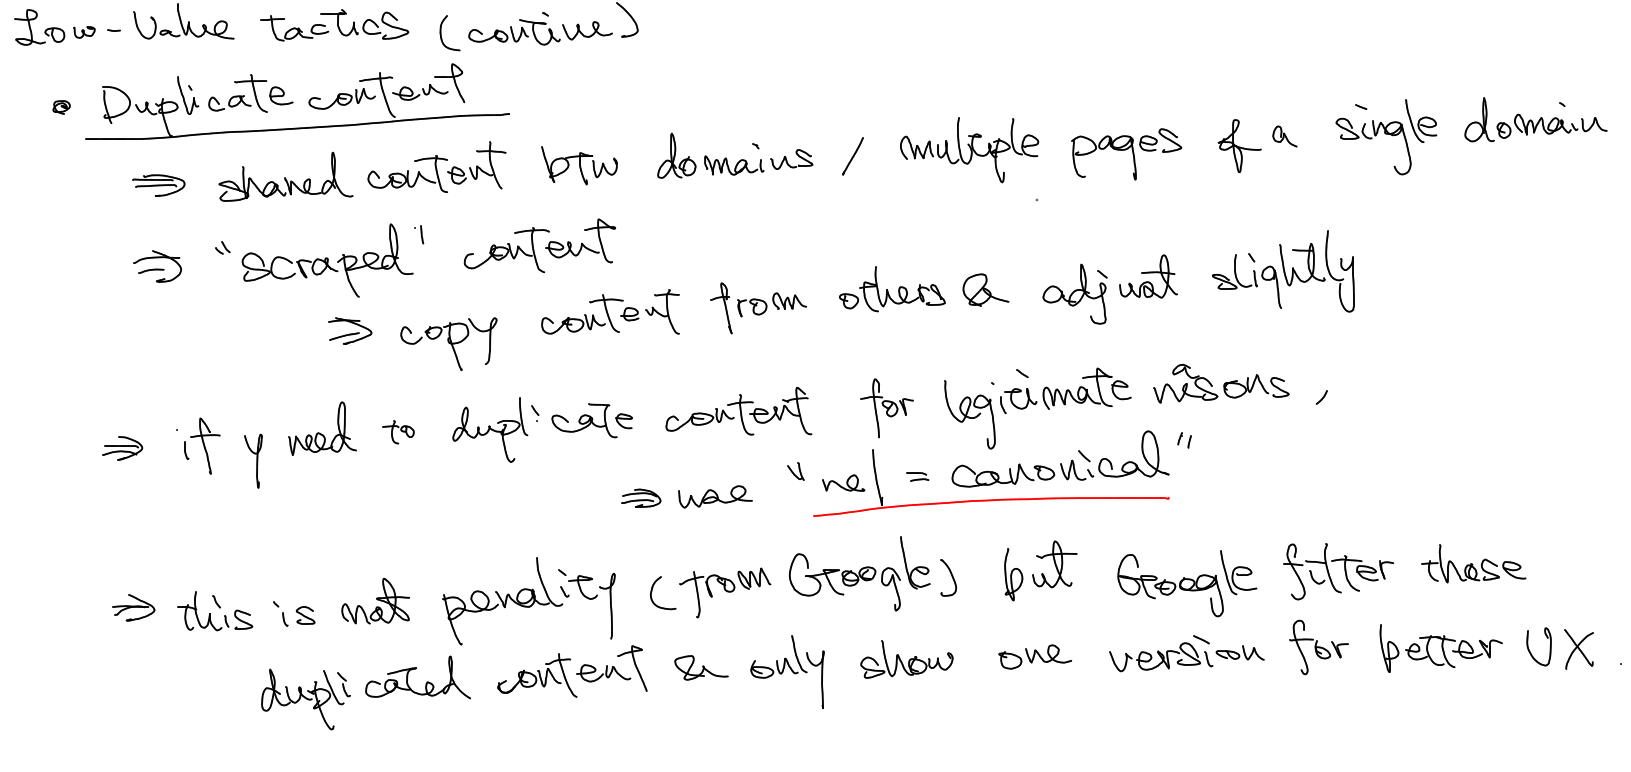 Low-Value tactics (contine)
• Duplicate content
⇒ shared content btw domains / multiple pages of a single domain
⇒ "scraped" content
⇒ copy content from others & adjust slightly
⇒ if y need to duplicate content for legitimate reasons,
⇒ use "rel = canonical"
⇒ this is not penality (from Google) but Google filter those
duplicated content & only show one version for better UX.